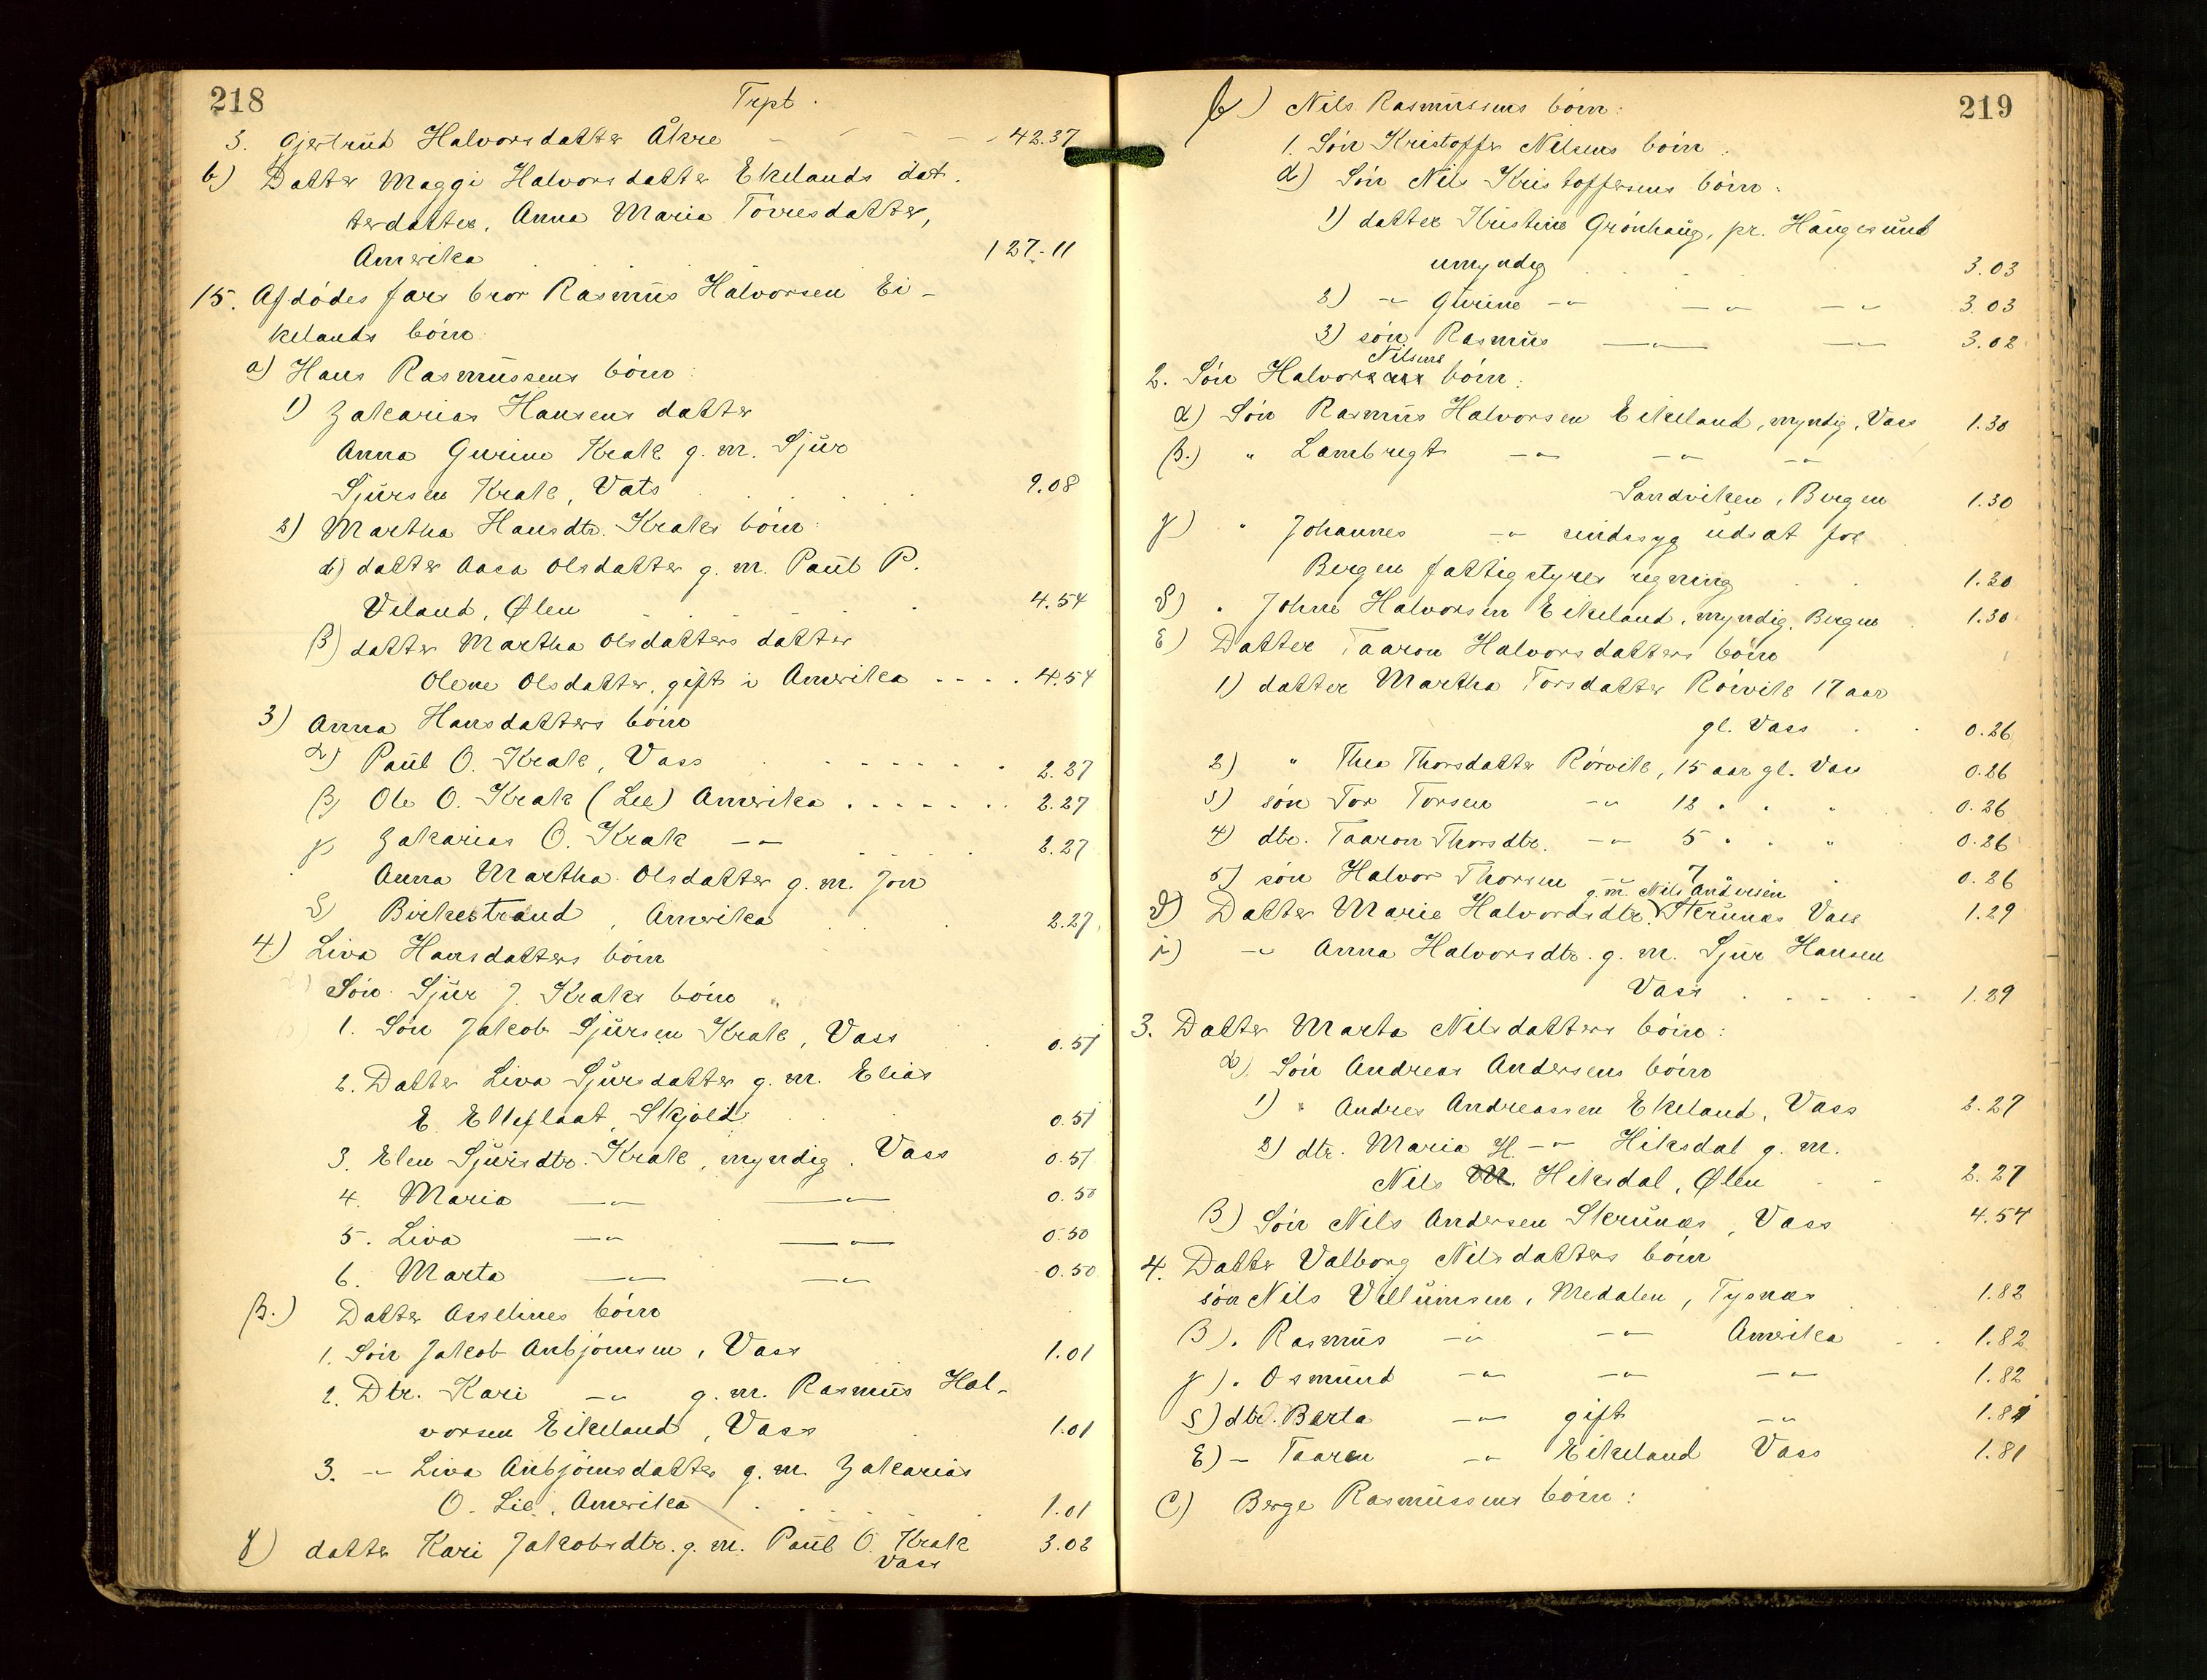 218
Trpt.
3. Gjertrud Halvorsdatter Åkre 42.37
b) Datter Maggi Halvorsdatter Ekelands dat-
terdatter, Anna Maria Törresdatter,
Amerika 127.11
15. Afdødes fars bror Rasmus Halvorsen Ei-
kelands börn
a) Hans Rasmussens börn:
1) Zakarias Hansens datter
Anna Gurine Krak g. m. Sjur
Sjursen Krak, Vats 9.08
2) Martha Hansdtr. Kraks börn:
α) datter Aasa Olsdatter g. m. Paul P.
Viland, Ølen 4.54
β) datter Martha Olsdatters datter
Olene Olsdatter, gift i Amerika 4.54
3) Anna Hansdatters börn
α) Paul O. Krak, Vass 2.27
β) Ole O. Krak (Lee) Amerika 2.27
γ) Zakarias O. Krak -"- 2.27
Anna Martha Olsdatter g. m. Jon
δ) Birkestrand, Amerika 2.27
4) Liva Hansdatters börn
Sön Sjur J. Kraks börn
1. Sön Jakob Sjursen Krak, Vass 0.51
2. Datter Liva Sjursdatter g. m. Elias
E. Ekeflaat, Skjold 0.51
3. Elen Sjursdtr. Krak, myndig. Vass 0.51
4. Maria -"- -"- 0.50
5. Liva -"- -"- 0.50
6. Marta -"- -"- 0.50
β.) Datter Asselines börn
1. Sön Jakob Anbjörnsen, Vass 1.01
2. Dtr. Kari -"- g. m. Rasmus Hal-
vorsen Eikeland, Vass 1.01
3. -"- Liva Anbjörnsdatter g. m. Zakarias
O. Lie, Amerika 1.01
γ) datter Kari Jakobsdtr. g. m. Paul O. Krak 3.02
Vass
219
b) Nils Rasmussens börn:
1. Sön Kristoffer Nilsens börn:
α) Sön Nils Kristoffersens börn:
1) datter Kristine Grönhaug, pr. Haugesund
umyndig 3.03
2) -"- Gurine -"- -"- -"- 3.03
3) sön Rasmus -"- -"- 3.02
Nilsens
2. Sön Halvors börn:
α) Sön Rasmus Halvorsen Eikeland, myndig, Vass 1.30
β.) " Lambregt -"- -"- -"-
Sandviken, Bergen 1.30
γ) " Johannes -"- sindssyg udsat for
Bergen fattigstyres regning 1.30
δ) " Johne Halvorsen Eikeland, myndig. Bergen 1.30
ε) Datter Taaron Halvorsdatters börn
1) datter Martha Torsdatter Rörvik 17 aar
gl. Vass 0.26
2) " Thea Thorsdatter Rörvik, 15 aar gl. Vass 0.26
3) sön Tor Torsen -"- 12 " " " 0.26
4) dtr. Taaron Thorsdtr. -"- 5 " " " 0.26
5) sön Halvor Thorsen -"- 7 " 0.26
g. m. Nils Andersen
Datter Marie Halvorsdtr. Skrunas Vass 1.29
-"- Anna Halvorsdtr. g. m. Sjur Hansen
Vass 1.29
3. Datter Marta Nilsdatters börn:
α) Sön Andreas Andersens börn
1) " Andres Andreassen Ekeland, Vass 2.27
2) dtr. Maria H. -"- Hiksdal g. m.
Nils M. Hiksdal, Ølen 2.27
β) Sön Nils Andersen Skrunas, Vass 4.54
4. Datter Valborg Nilsdatters börn
sön Nils Villumsen, Medalen, Tysnæs 1.82
β). Rasmus -"- -"- Amerika 1.82
γ). Osmund -"- -"- -"- 1.82
δ) dtr. Berta -"- gift -"- 1.81
ε) - Taaren -"- Eikeland Vass 1.81
C) Berge Rasmussens börn: